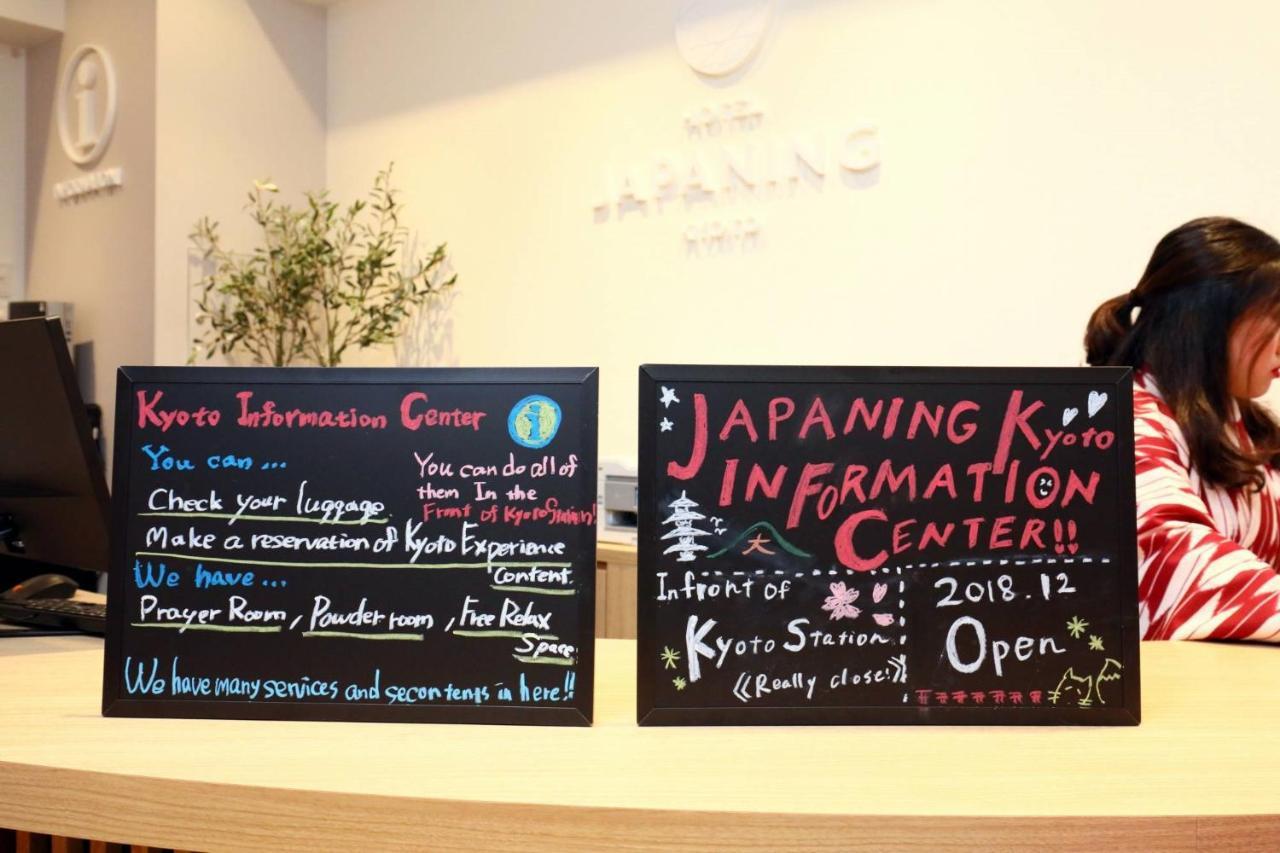 JAPANING
Kyoto Information Center
You can...
Check your luggage
Make a reservation of Kyoto Experience
Content.
You can do all of
them In the
Front of Kyoto Station!
We have...
Prayer Room, Powder room, Free Relax
Space
We have many services and secontents in here!!
JAPANING Kyoto
INFORMATION
CENTER!!
大
Infront of
Kyoto Station
《Really close!》
2018.12
Open